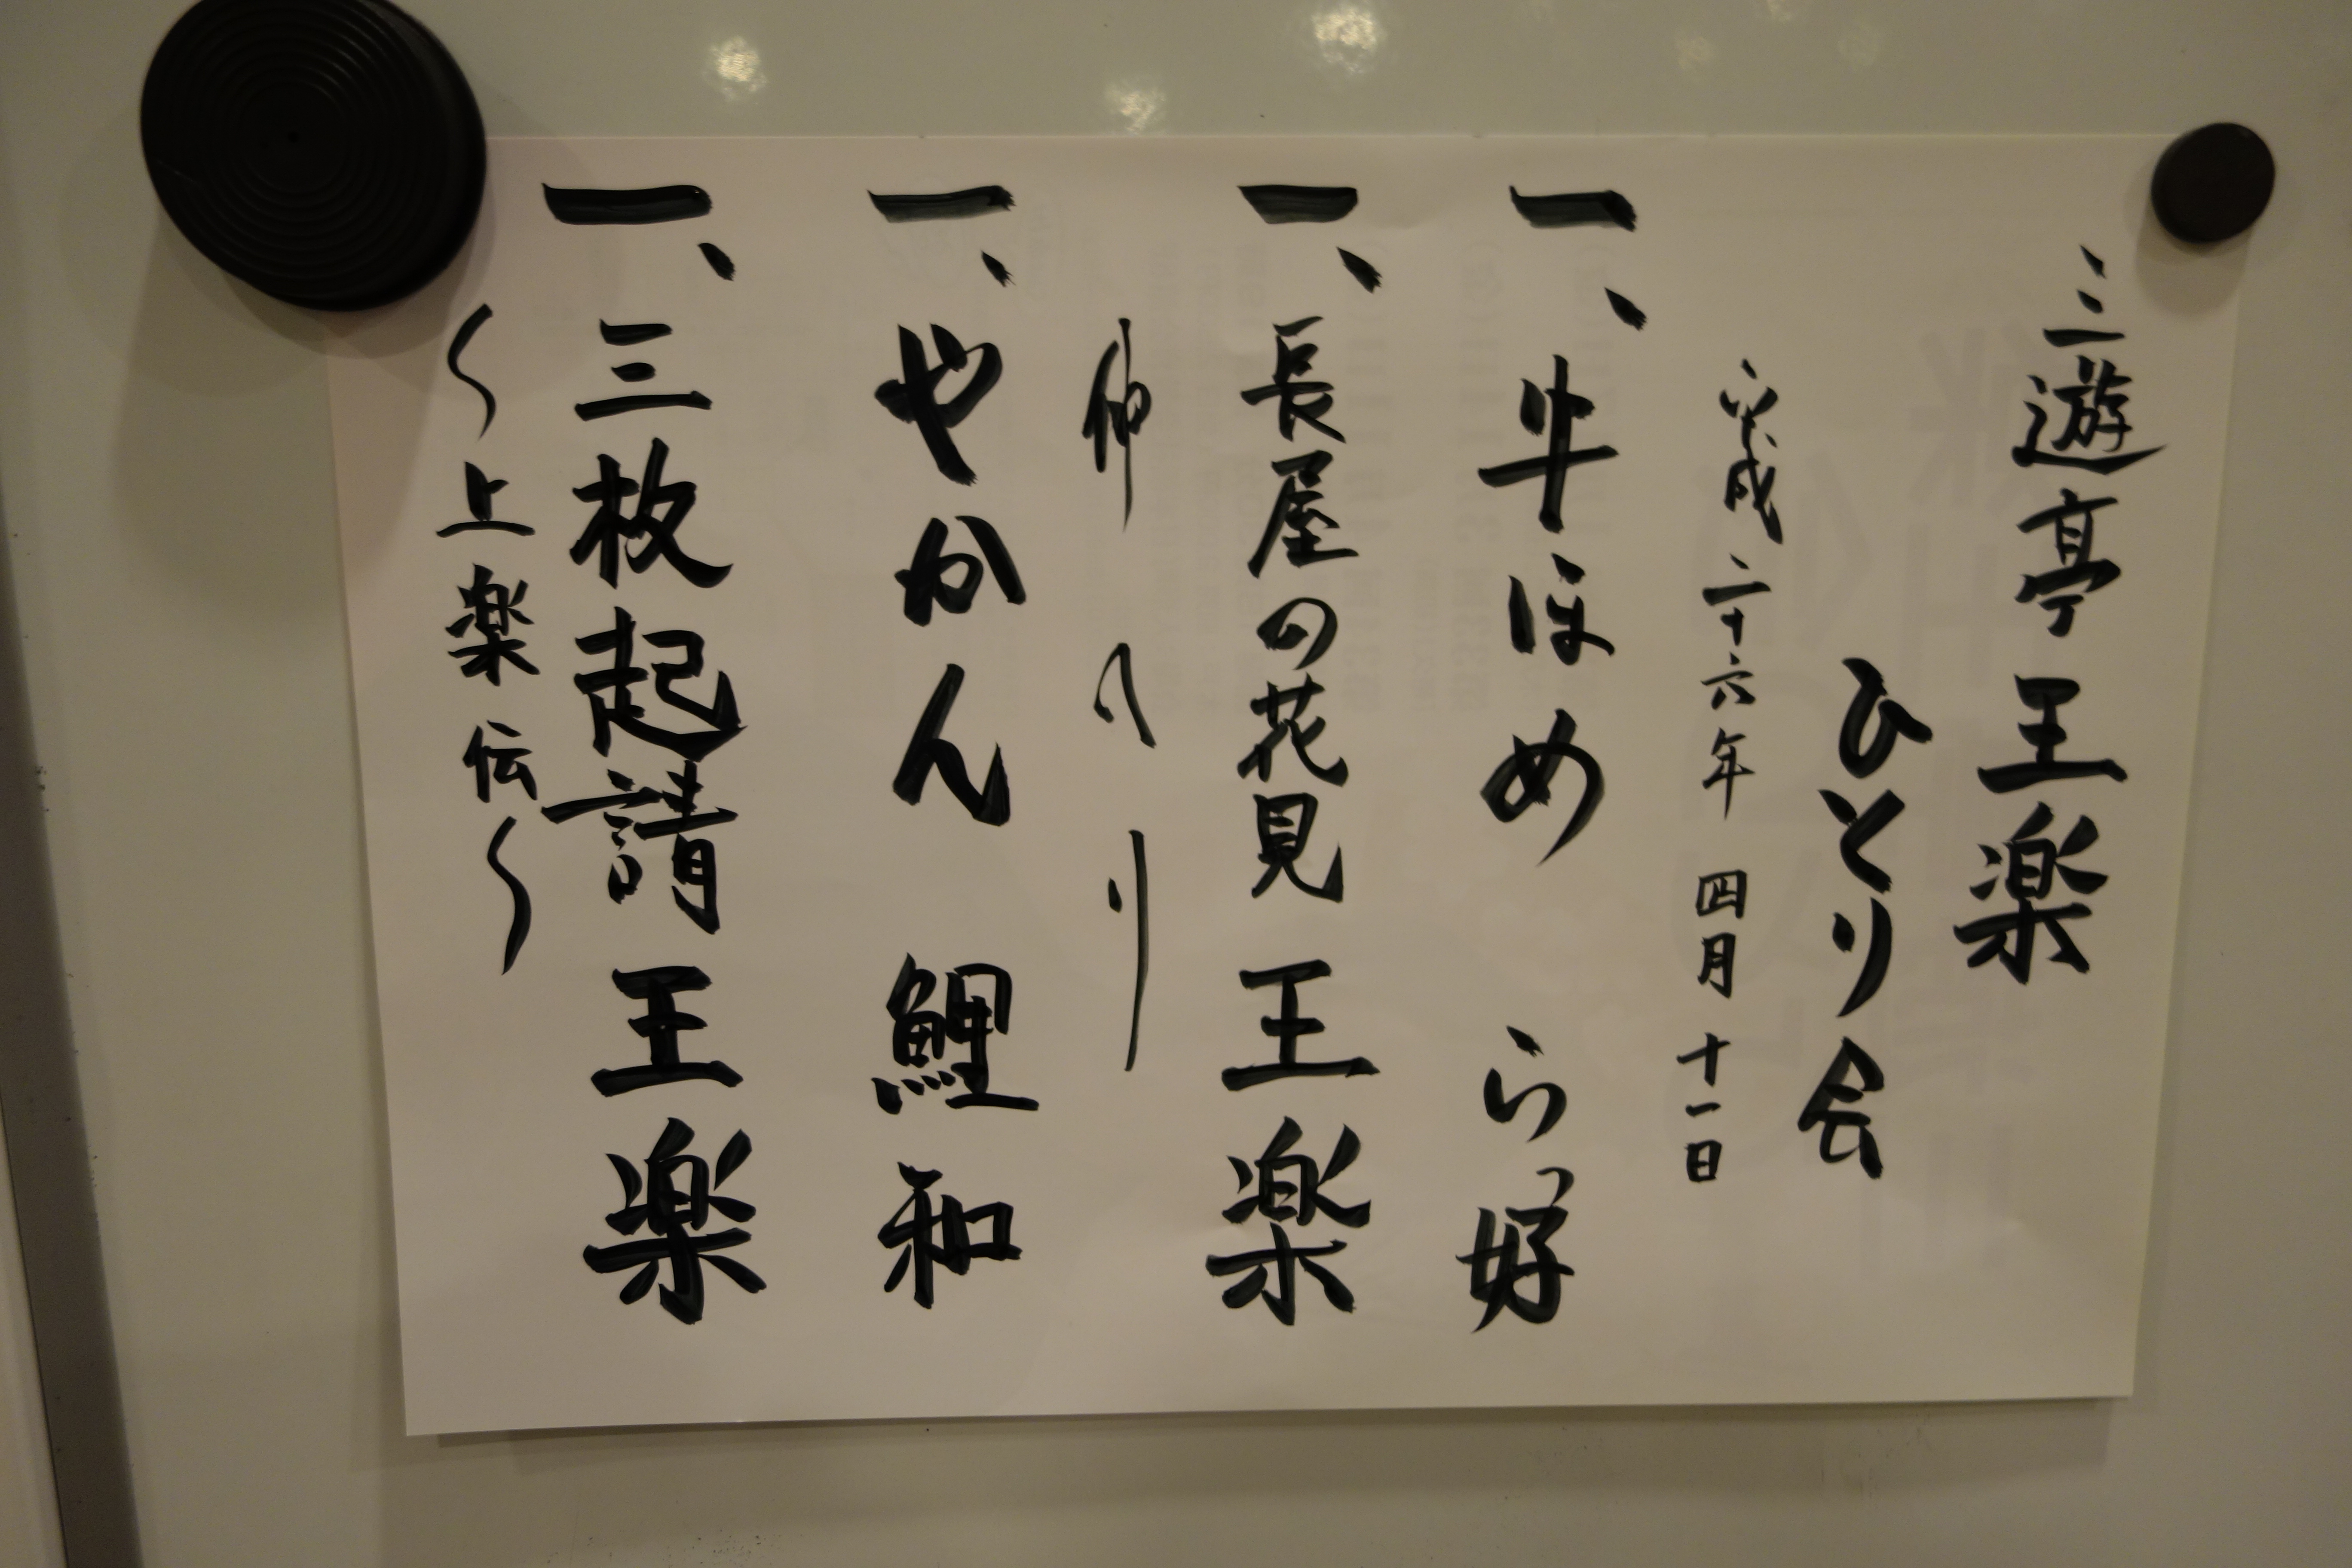 三遊亭王楽
ひとり会
平成二十六年 四月 十一日
一、牛ほめ ら好
一、長屋の花見 王楽
仲入り
一、やかん 鯉和
一、三枚起請 王楽
〜上楽伝〜